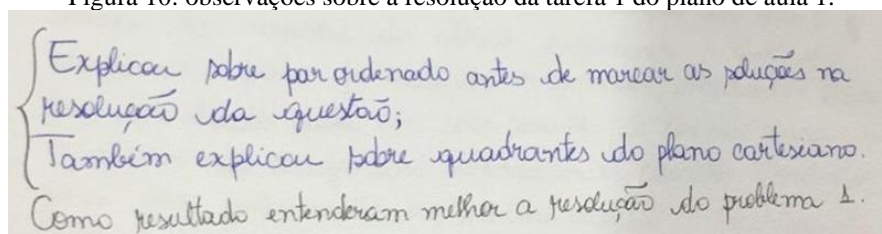 Figura 10: observações sobre a resolução da tarefa 1 do plano de aula 1.
Explicou sobre par ordenado antes de marcar as soluções na
resolução da questão;
Também explicou sobre quadrantes do plano cartesiano.
Como resultado entenderam melhor a resolução do problema 1.